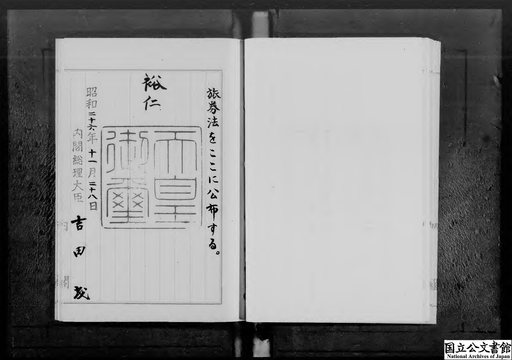 旅券法をここに公布する。
裕仁
天皇御璽
昭和二十六年十一月二十八日
内閣総理大臣 吉田茂
国立公文書館
National Archives of Japan